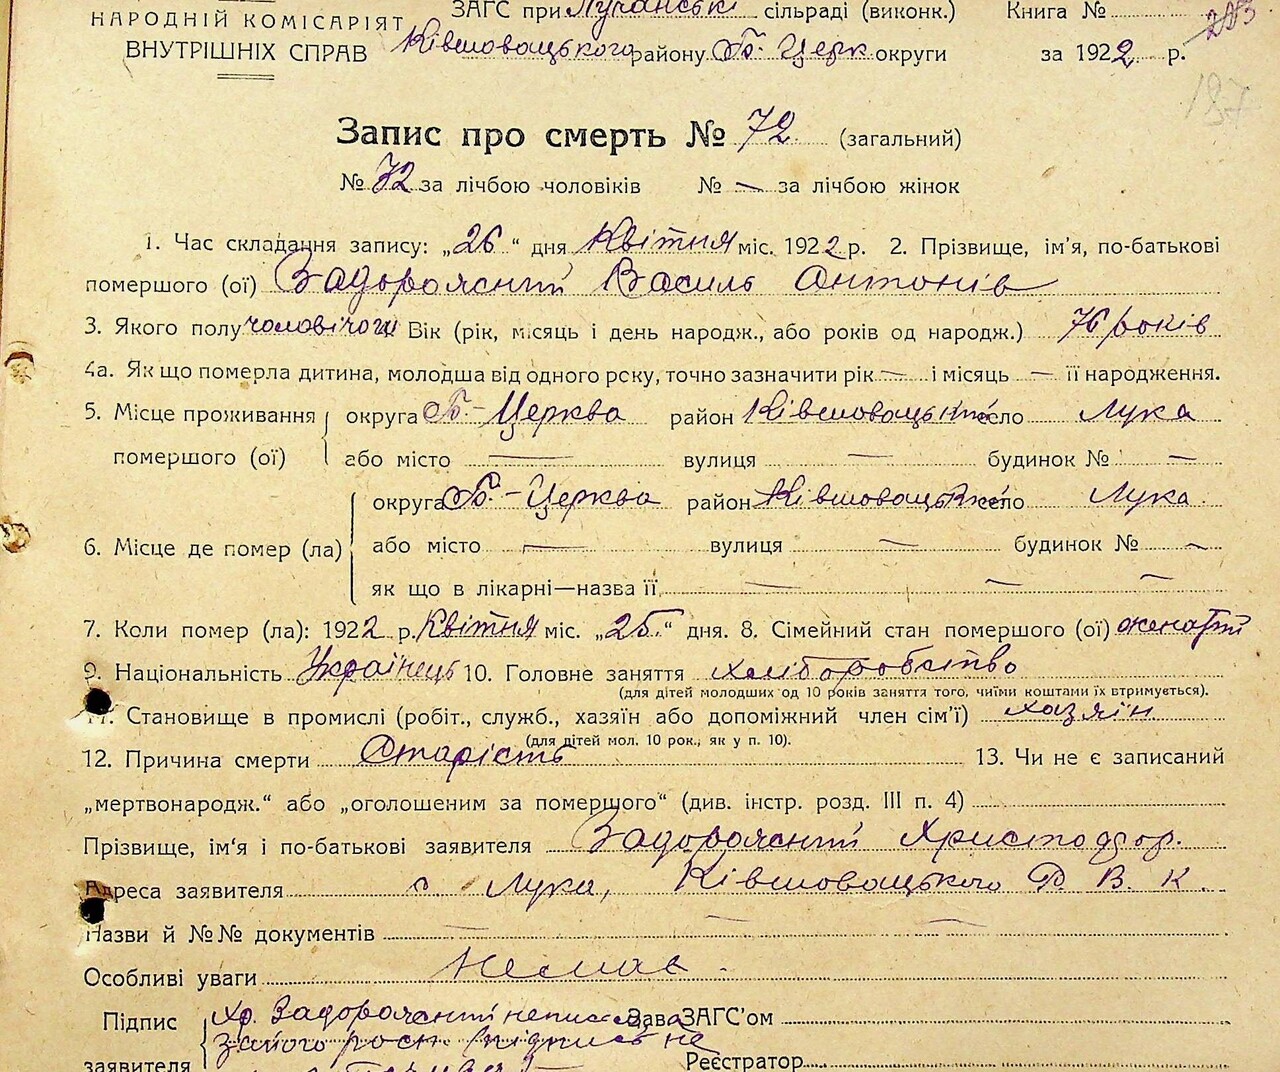 НАРОДНІЙ КОМІСАРІЯТ
ВНУТРІШНІХ СПРАВ
ЗАГС при Лучанські сільраді (виконк.) Книга №
Ківшоватського району Б. Церк округи за 1922 р.
187
Запис про смерть № 72 (загальний)
№ 72 за лічбою чоловіків № — за лічбою жінок
1. Час складання запису: „26“ дня Квітня міс. 1922 р. 2. Прізвище, ім'я, по-батькові
помершого (ої) Задорожний Василь Антонів
3. Якого полу чоловічого Вік (рік, місяць і день народж., або років од народж.) 76 років
4а. Як що померла дитина, молодша від одного року, точно зазначити рік — і місяць — її народження.
5. Місце проживання помершого (ої) округа Б.-Церква район Ківшоватський село Лука
або місто — вулиця — будинок № —
6. Місце де помер (ла) округа Б.-Церква район Ківшоватський село Лука
або місто — вулиця — будинок № —
як що в лікарні—назва її — — —
7. Коли помер (ла): 1922 р. Квітня міс. „25.“ дня. 8. Сімейний стан помершого (ої) женатий
9. Національність Українець 10. Головне заняття хліборобство
(для дітей молодших од 10 років заняття того, чиїми коштами їх втримується).
11. Становище в промислі (робіт., служб., хазяїн або допоміжний член сім'ї) хазяїн
(для дітей мол. 10 рок., як у п. 10).
12. Причина смерти Старість 13. Чи не є записаний
„мертвонародж.“ або „оголошеним за помершого“ (див. інстр. розд. III п. 4)
Прізвище, ім'я і по-батькові заявителя Задорожний Христофор.
Адреса заявителя с. Лука, Ківшоватського Р. В. К.
Назви й №№ документів — — —
Особливі уваги Немає.
Підпис заявителя Хр. Задорожний неписьм.
За його росп.
підпис не
Зав ЗАГС'ом
Реєстратор